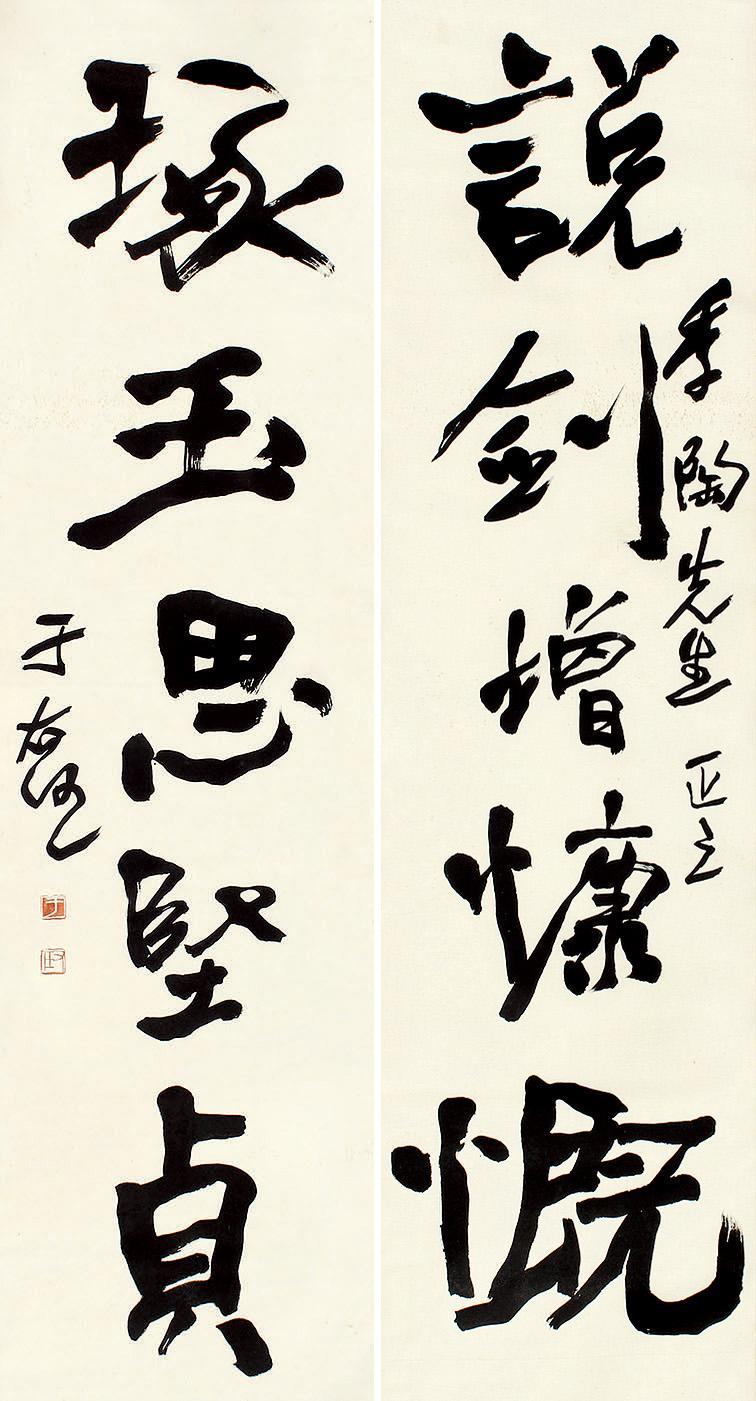 說劍增慷慨
季陶先生 正之
琢玉思堅貞
于右任